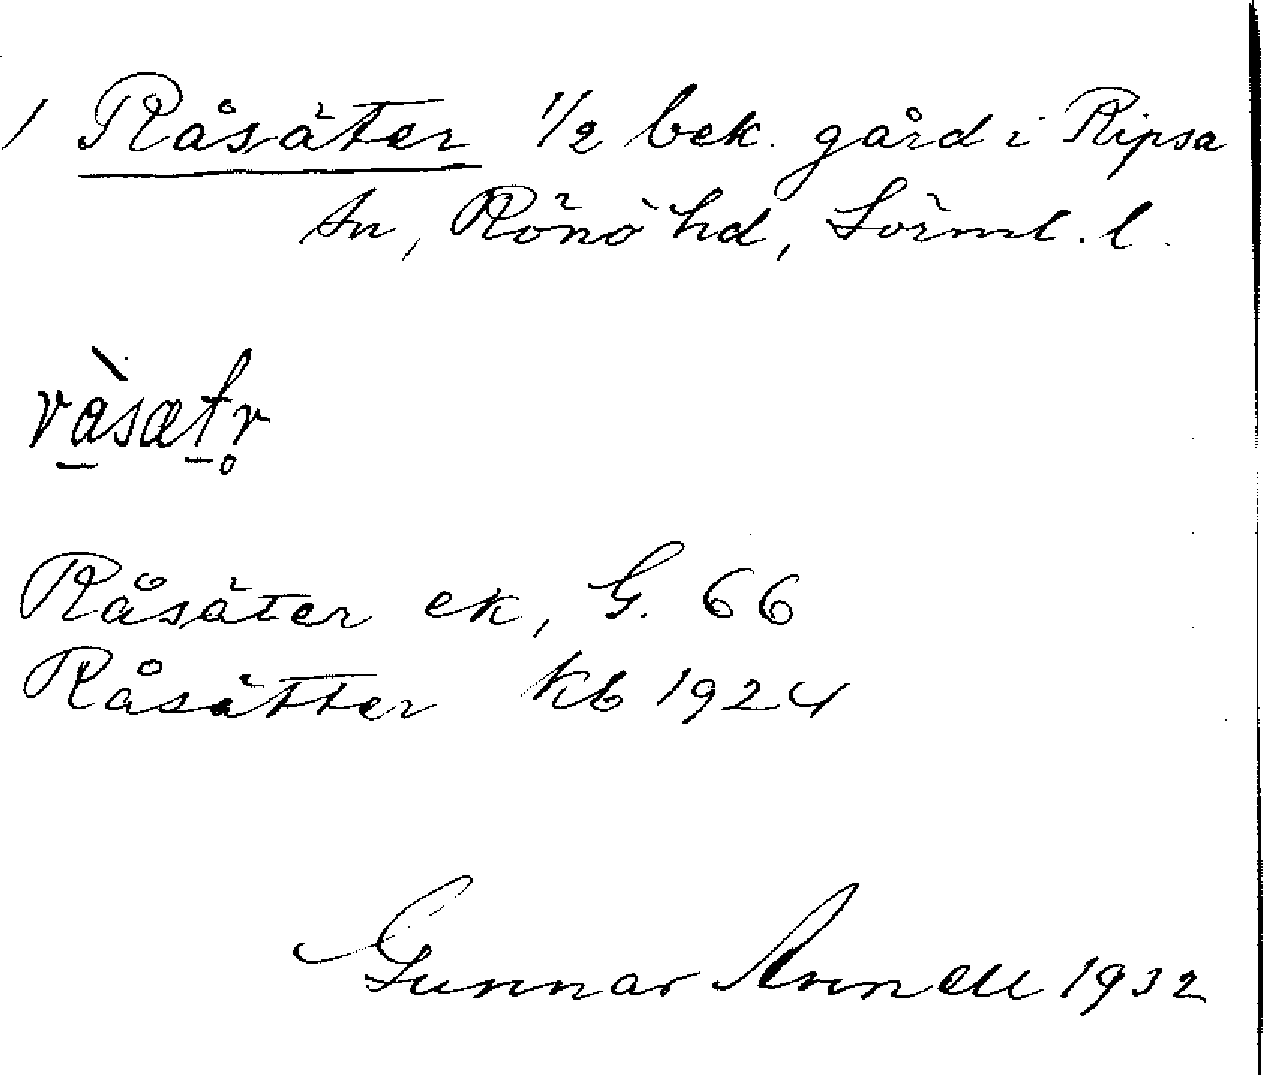 1 Råsäter 1/2 bek. gård i Ripsa
sn, Rönö hd, Sörml. l.
ràsætr̥
Råsäter ek, G. 66
Råsätter kb 1924
Gunnar 1932